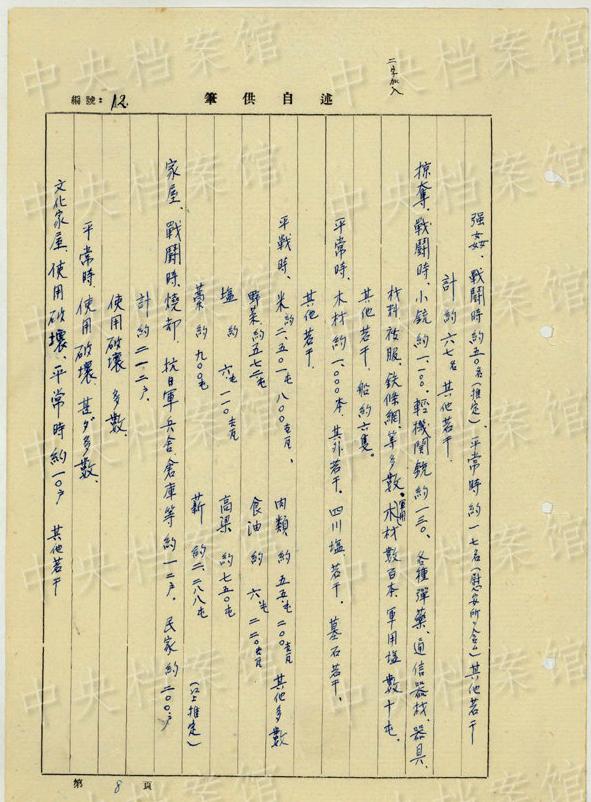 二字加入
編號: 12.
筆供自述
强姦、戰鬪時約五〇名(推定)、平常時約一七名(慰安所ノ含ム)其他若干
計 約六七名 其他若干.
掠奪、戰鬪時、小銃約一.一〇〇. 輕機関銃約一三〇、各種彈藥、通信器材、器具、
材料被服、鉄條網、等多數、軍用木材數百本、軍用塩數十屯、
其他若干、船約六隻。
平常時、木材約一.〇〇〇本、其外若干、四川塩若干、墓石若干、
其他若干.
平戰時、米約二、五〇一屯八〇〇吉瓦、 肉類 約五五屯二〇〇吉瓦 其他多數
野菜約五七二屯 食油 約 六屯二二〇吉瓦
塩 約 六屯一一〇吉瓦 高梁 約七五〇屯
藁 約九〇〇屯 薪 約二.二八八屯 (以上推定)
家屋、戰鬪時燒却、抗日軍兵舎倉庫等約一二戸、民家約二〇〇戸
計約二一二戸、
使用破壊 多數
平常時、使用破壊、甚ダ多數、
文化家屋、使用破壊、平常時約一〇戸 其他若干
第 8 頁
中央档案馆